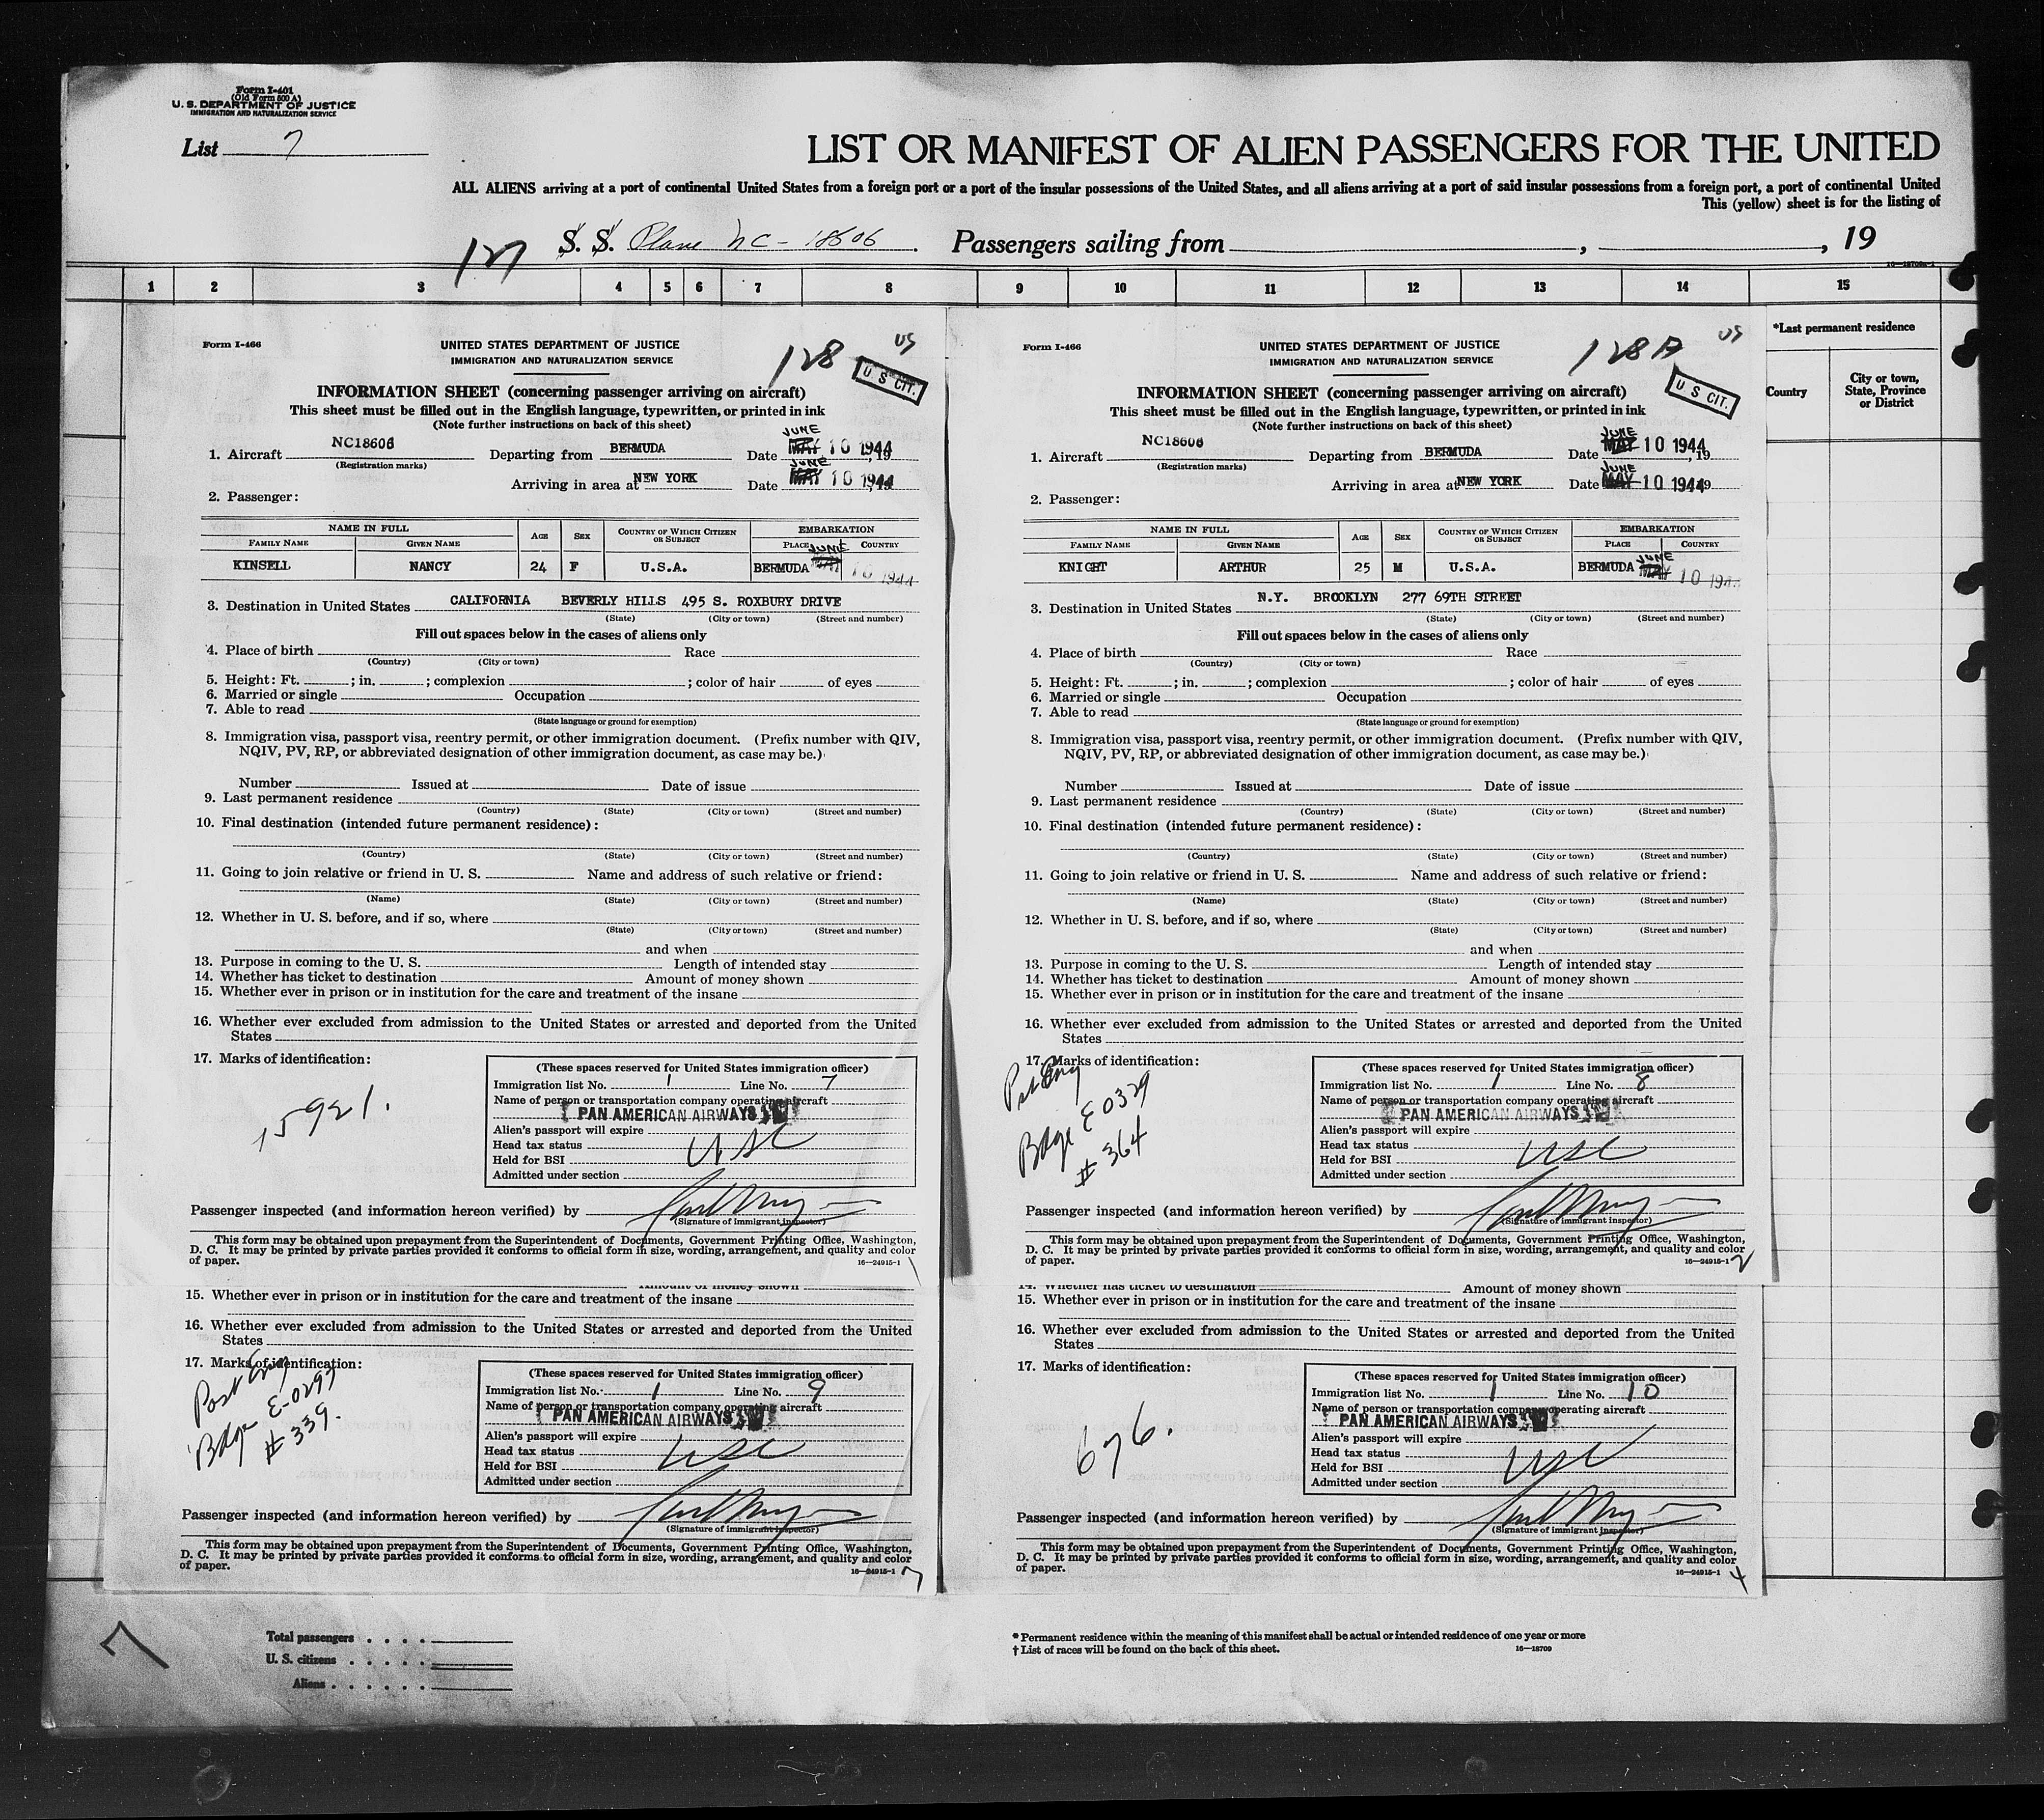 Form I-401
(Old Form 500 A)
U. S. DEPARTMENT OF JUSTICE
IMMIGRATION AND NATURALIZATION SERVICE
List 7
LIST OR MANIFEST OF ALIEN PASSENGERS FOR THE UNITED
ALL ALIENS arriving at a port of continental United States from a foreign port or a port of the insular possessions of the United States, and all aliens arriving at a port of said insular possessions from a foreign port, a port of continental United
This (yellow) sheet is for the listing of
127 S. S. Plane NC-18606. Passengers sailing from , , 19
1 2 3 4 5 6 7 8 9 10 11 12 13 14 15
*Last permanent residence
Country
City or town, State, Province or District
Form I-466
UNITED STATES DEPARTMENT OF JUSTICE
IMMIGRATION AND NATURALIZATION SERVICE
128
US
U S CIT.
INFORMATION SHEET (concerning passenger arriving on aircraft)
This sheet must be filled out in the English language, typewritten, or printed in ink
(Note further instructions on back of this sheet)
1. Aircraft NC18606 Departing from BERMUDA Date JUNE MAY 10 1944
(Registration marks)
Arriving in area at NEW YORK Date JUNE MAY 10 1944
2. Passenger:
NAME IN FULL AGE SEX COUNTRY OF WHICH CITIZEN OR SUBJECT EMBARKATION
FAMILY NAME GIVEN NAME PLACE COUNTRY
KINSELL NANCY 24 F U.S.A. BERMUDA JUNE MAY 10 1944
3. Destination in United States CALIFORNIA BEVERLY HILLS 495 S. ROXBURY DRIVE
(State) (City or town) (Street and number)
Fill out spaces below in the cases of aliens only
4. Place of birth Race
(Country) (City or town)
5. Height: Ft. ; in. ; complexion ; color of hair of eyes
6. Married or single Occupation
7. Able to read
(State language or ground for exemption)
8. Immigration visa, passport visa, reentry permit, or other immigration document. (Prefix number with QIV,
NQIV, PV, RP, or abbreviated designation of other immigration document, as case may be.)
Number Issued at Date of issue
9. Last permanent residence
(Country) (State) (City or town) (Street and number)
10. Final destination (intended future permanent residence):
(Country) (State) (City or town) (Street and number)
11. Going to join relative or friend in U. S. Name and address of such relative or friend:
(Name) (State) (City or town) (Street and number)
12. Whether in U. S. before, and if so, where
(State) (City or town) (Street and number)
and when
13. Purpose in coming to the U. S. Length of intended stay
14. Whether has ticket to destination Amount of money shown
15. Whether ever in prison or in institution for the care and treatment of the insane
16. Whether ever excluded from admission to the United States or arrested and deported from the United
States
17. Marks of identification:
15921.
(These spaces reserved for United States immigration officer)
Immigration list No. 1 Line No. 7
Name of person or transportation company operating aircraft
PAN AMERICAN AIRWAYS
Alien's passport will expire
Head tax status USC
Held for BSI
Admitted under section
Passenger inspected (and information hereon verified) by
(Signature of immigrant inspector)
This form may be obtained upon prepayment from the Superintendent of Documents, Government Printing Office, Washington,
D. C. It may be printed by private parties provided it conforms to official form in size, wording, arrangement, and quality and color
of paper.
16—24915-1
Form I-466
UNITED STATES DEPARTMENT OF JUSTICE
IMMIGRATION AND NATURALIZATION SERVICE
128A
US
U S CIT.
INFORMATION SHEET (concerning passenger arriving on aircraft)
This sheet must be filled out in the English language, typewritten, or printed in ink
(Note further instructions on back of this sheet)
1. Aircraft NC18606 Departing from BERMUDA Date JUNE MAY 10 1944, 19
(Registration marks)
Arriving in area at NEW YORK Date JUNE MAY 10 1944
2. Passenger:
NAME IN FULL AGE SEX COUNTRY OF WHICH CITIZEN OR SUBJECT EMBARKATION
FAMILY NAME GIVEN NAME PLACE COUNTRY
KNIGHT ARTHUR 25 M U.S.A. BERMUDA JUNE MAY 10 1944
3. Destination in United States N.Y. BROOKLYN 277 69TH STREET
(State) (City or town) (Street and number)
Fill out spaces below in the cases of aliens only
4. Place of birth Race
(Country) (City or town)
5. Height: Ft. ; in. ; complexion ; color of hair of eyes
6. Married or single Occupation
7. Able to read
(State language or ground for exemption)
8. Immigration visa, passport visa, reentry permit, or other immigration document. (Prefix number with QIV,
NQIV, PV, RP, or abbreviated designation of other immigration document, as case may be.)
Number Issued at Date of issue
9. Last permanent residence
(Country) (State) (City or town) (Street and number)
10. Final destination (intended future permanent residence):
(Country) (State) (City or town) (Street and number)
11. Going to join relative or friend in U. S. Name and address of such relative or friend:
(Name) (State) (City or town) (Street and number)
12. Whether in U. S. before, and if so, where
(State) (City or town) (Street and number)
and when
13. Purpose in coming to the U. S. Length of intended stay
14. Whether has ticket to destination Amount of money shown
15. Whether ever in prison or in institution for the care and treatment of the insane
16. Whether ever excluded from admission to the United States or arrested and deported from the United
States
17. Marks of identification:
Bdge E0329
# 364
(These spaces reserved for United States immigration officer)
Immigration list No. 1 Line No. 8
Name of person or transportation company operating aircraft
PAN AMERICAN AIRWAYS
Alien's passport will expire
Head tax status USC
Held for BSI
Admitted under section
Passenger inspected (and information hereon verified) by
(Signature of immigrant inspector)
This form may be obtained upon prepayment from the Superintendent of Documents, Government Printing Office, Washington,
D. C. It may be printed by private parties provided it conforms to official form in size, wording, arrangement, and quality and color
of paper.
16—24915-1 2
Amount of money shown
15. Whether ever in prison or in institution for the care and treatment of the insane
16. Whether ever excluded from admission to the United States or arrested and deported from the United
States
17. Marks of identification:
Port Eng
Bdge E-0297
# 339.
(These spaces reserved for United States immigration officer)
Immigration list No. 1 Line No. 9
Name of person or transportation company operating aircraft
PAN AMERICAN AIRWAYS
Alien's passport will expire
Head tax status USC
Held for BSI
Admitted under section
Passenger inspected (and information hereon verified) by
(Signature of immigrant inspector)
This form may be obtained upon prepayment from the Superintendent of Documents, Government Printing Office, Washington,
D. C. It may be printed by private parties provided it conforms to official form in size, wording, arrangement, and quality and color
of paper.
16—24915-1
14. Whether has ticket to destination Amount of money shown
15. Whether ever in prison or in institution for the care and treatment of the insane
16. Whether ever excluded from admission to the United States or arrested and deported from the United
States
17. Marks of identification:
676.
(These spaces reserved for United States immigration officer)
Immigration list No. 1 Line No. 10
Name of person or transportation company operating aircraft
PAN AMERICAN AIRWAYS
Alien's passport will expire
Head tax status USC
Held for BSI
Admitted under section
Passenger inspected (and information hereon verified) by
(Signature of immigrant inspector)
This form may be obtained upon prepayment from the Superintendent of Documents, Government Printing Office, Washington,
D. C. It may be printed by private parties provided it conforms to official form in size, wording, arrangement, and quality and color
of paper.
16—24915-1 4
7
Total passengers . . . .
U. S. citizens . . . . .
Aliens . . . . . .
* Permanent residence within the meaning of this manifest shall be actual or intended residence of one year or more
† List of races will be found on the back of this sheet.
16—18709